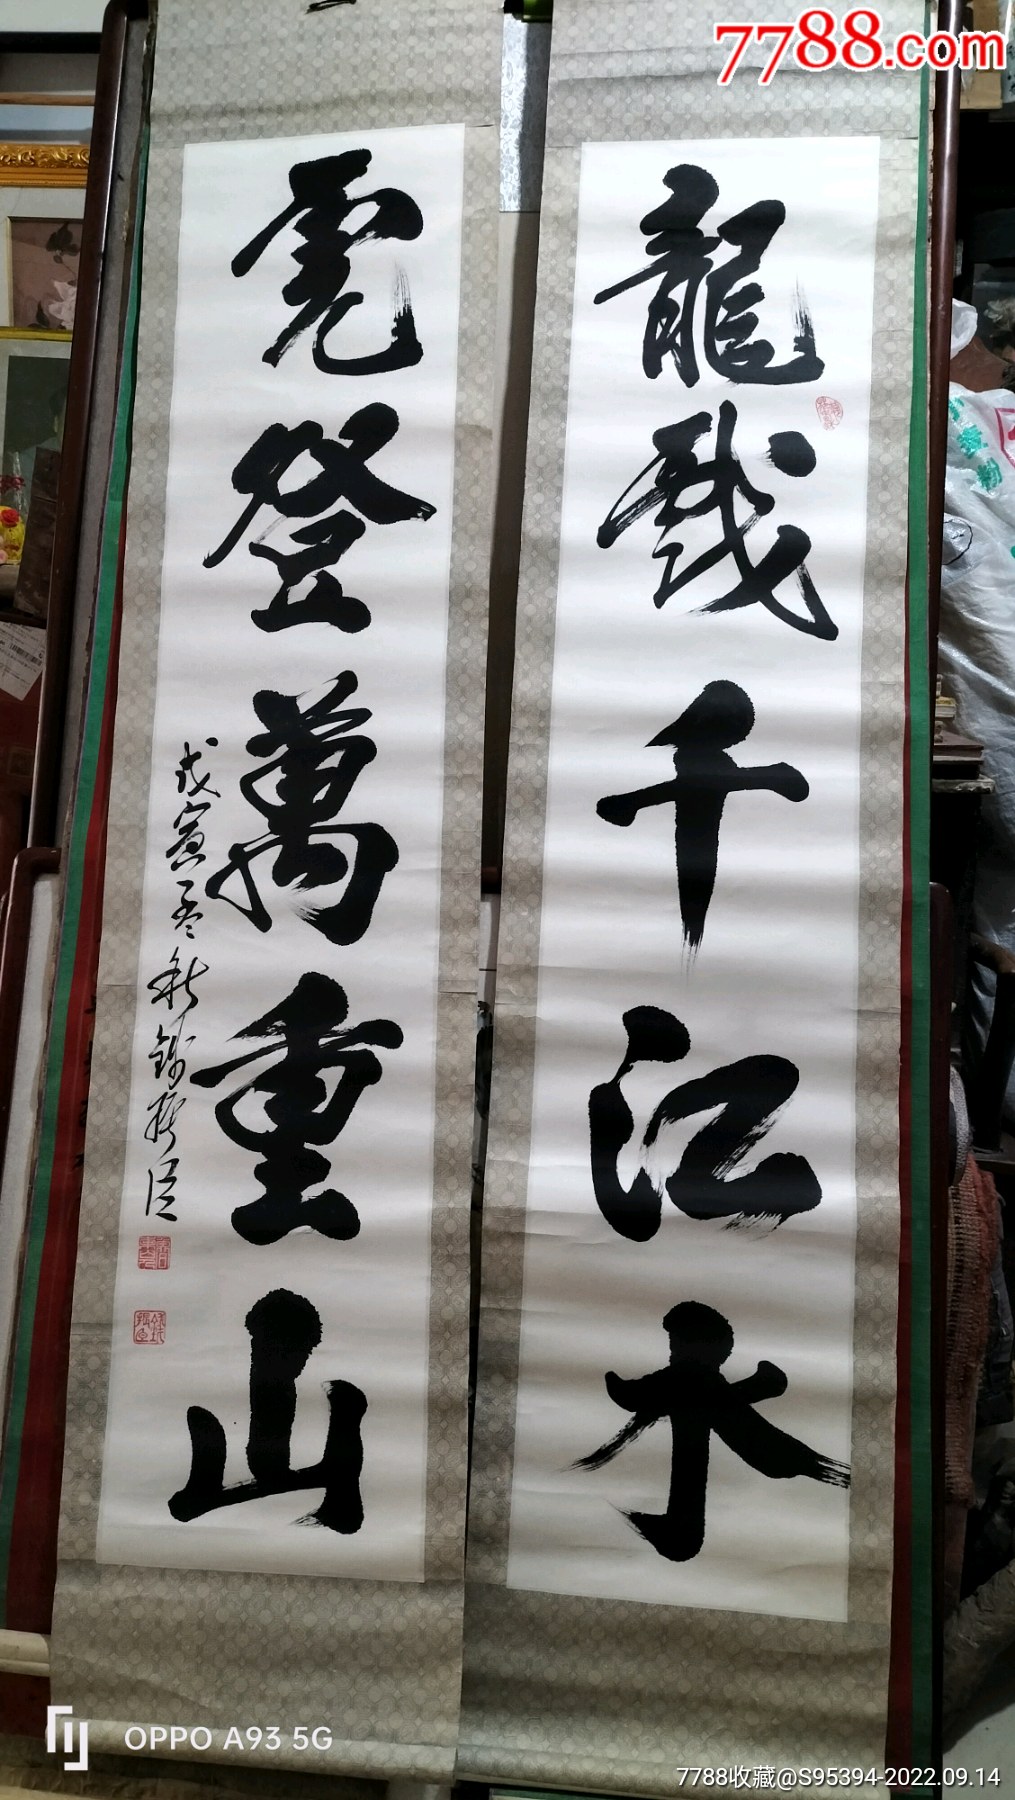 7788.com
龍戲千江水
虎登萬重山
戊寅孟秋錦森臣
OPPO A93 5G
7788收藏@S95394-2022.09.14